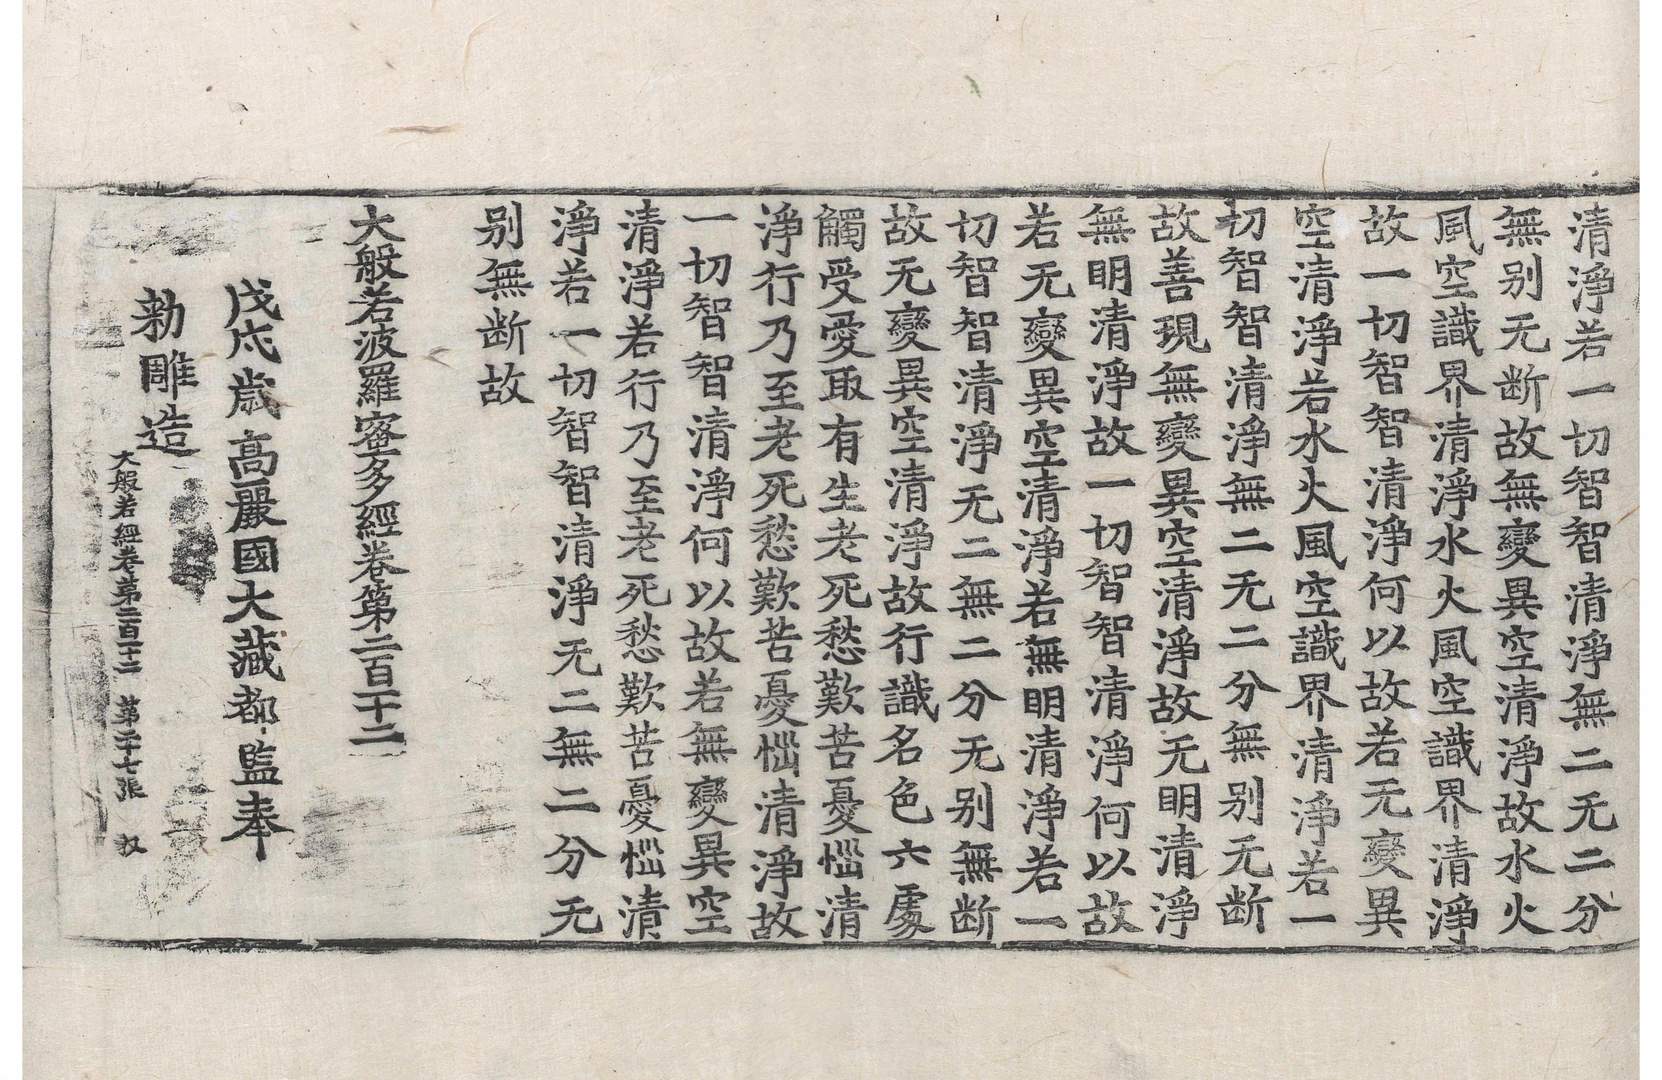 清淨若一切智智清淨無二无二分
無別无断故無變異空清淨故水火
風空識界清淨水火風空識界清淨
故一切智智清淨何以故若无變異
空清淨若水火風空識界清淨若一
切智智清淨無二无二分無別无断
故善現無變異空清淨故无明清淨
無明清淨故一切智智清淨何以故
若无變異空清淨若無明清淨若一
切智智清淨无二無二分无別無断
故无變異空清淨故行識名色六處
觸受愛取有生老死愁歎苦憂惱清
淨行乃至老死愁歎苦憂惱清淨故
一切智智清淨何以故若無變異空
清淨若行乃至老死愁歎苦憂惱清
淨若一切智智清淨无二無二分无
別無断故
大般若波羅蜜多經卷第二百十二
戊戌歲高麗國大藏都監奉
勑雕造
大般若經卷第二百十二 第二十七張